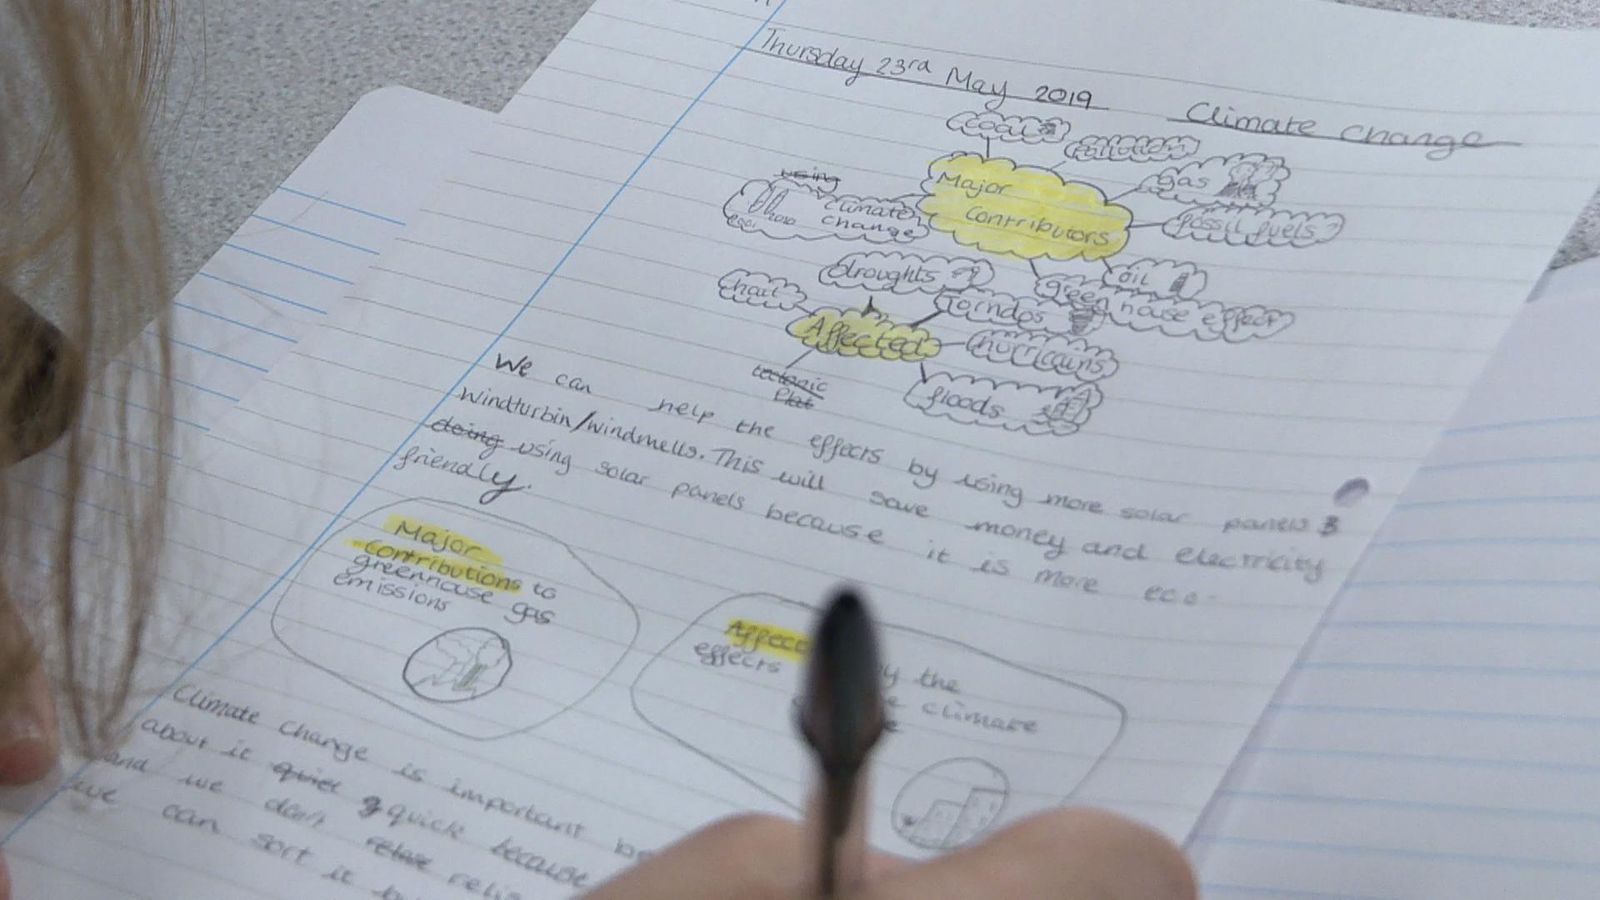 Thursday 23rd May 2019 Climate change
coal
Pollution
Major
Contributors
gas
using
climate
change
fossil fuels
oil
green house effect
droughts
hail
Torndos
Affected
hurricains
tectonic
Plat
floods
We can help the effects by using more solar panels
windturbin/windmells. This will save money and electricity
doing using solar panels because it is more eco-
friendly.
Major
contributions to
greenhouse gas
emissions
Affect
effects by the
climate
Climate change is important
about it quiet quick because
and we don't relise
we can sort it